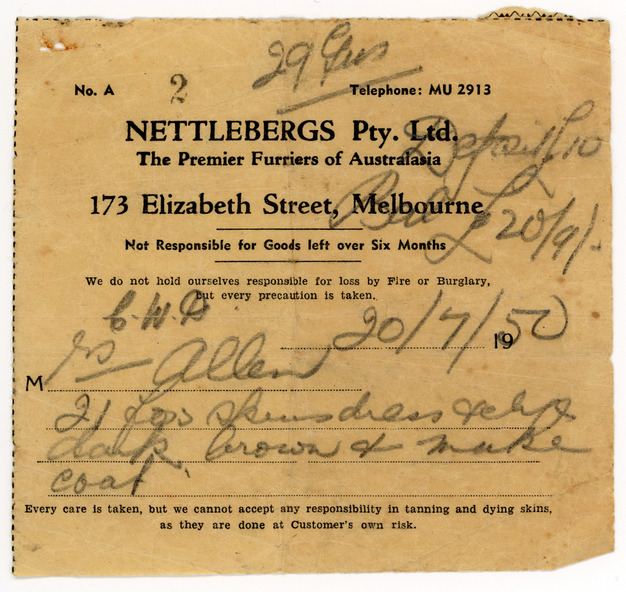 29 Gns
No. A 2 Telephone: MU 2913
NETTLEBERGS Pty. Ltd.
Deposit £10
The Premier Furriers of Australasia
173 Elizabeth Street, Melbourne
Bal £20/9/-
Not Responsible for Goods left over Six Months
We do not hold ourselves responsible for loss by Fire or Burglary,
but every precaution is taken.
C.W.B
20/7/1950
Mrs Allen
21 fox skins dress & dye
dark brown & make
coat
Every care is taken, but we cannot accept any responsibility in tanning and dying skins,
as they are done at Customer's own risk.